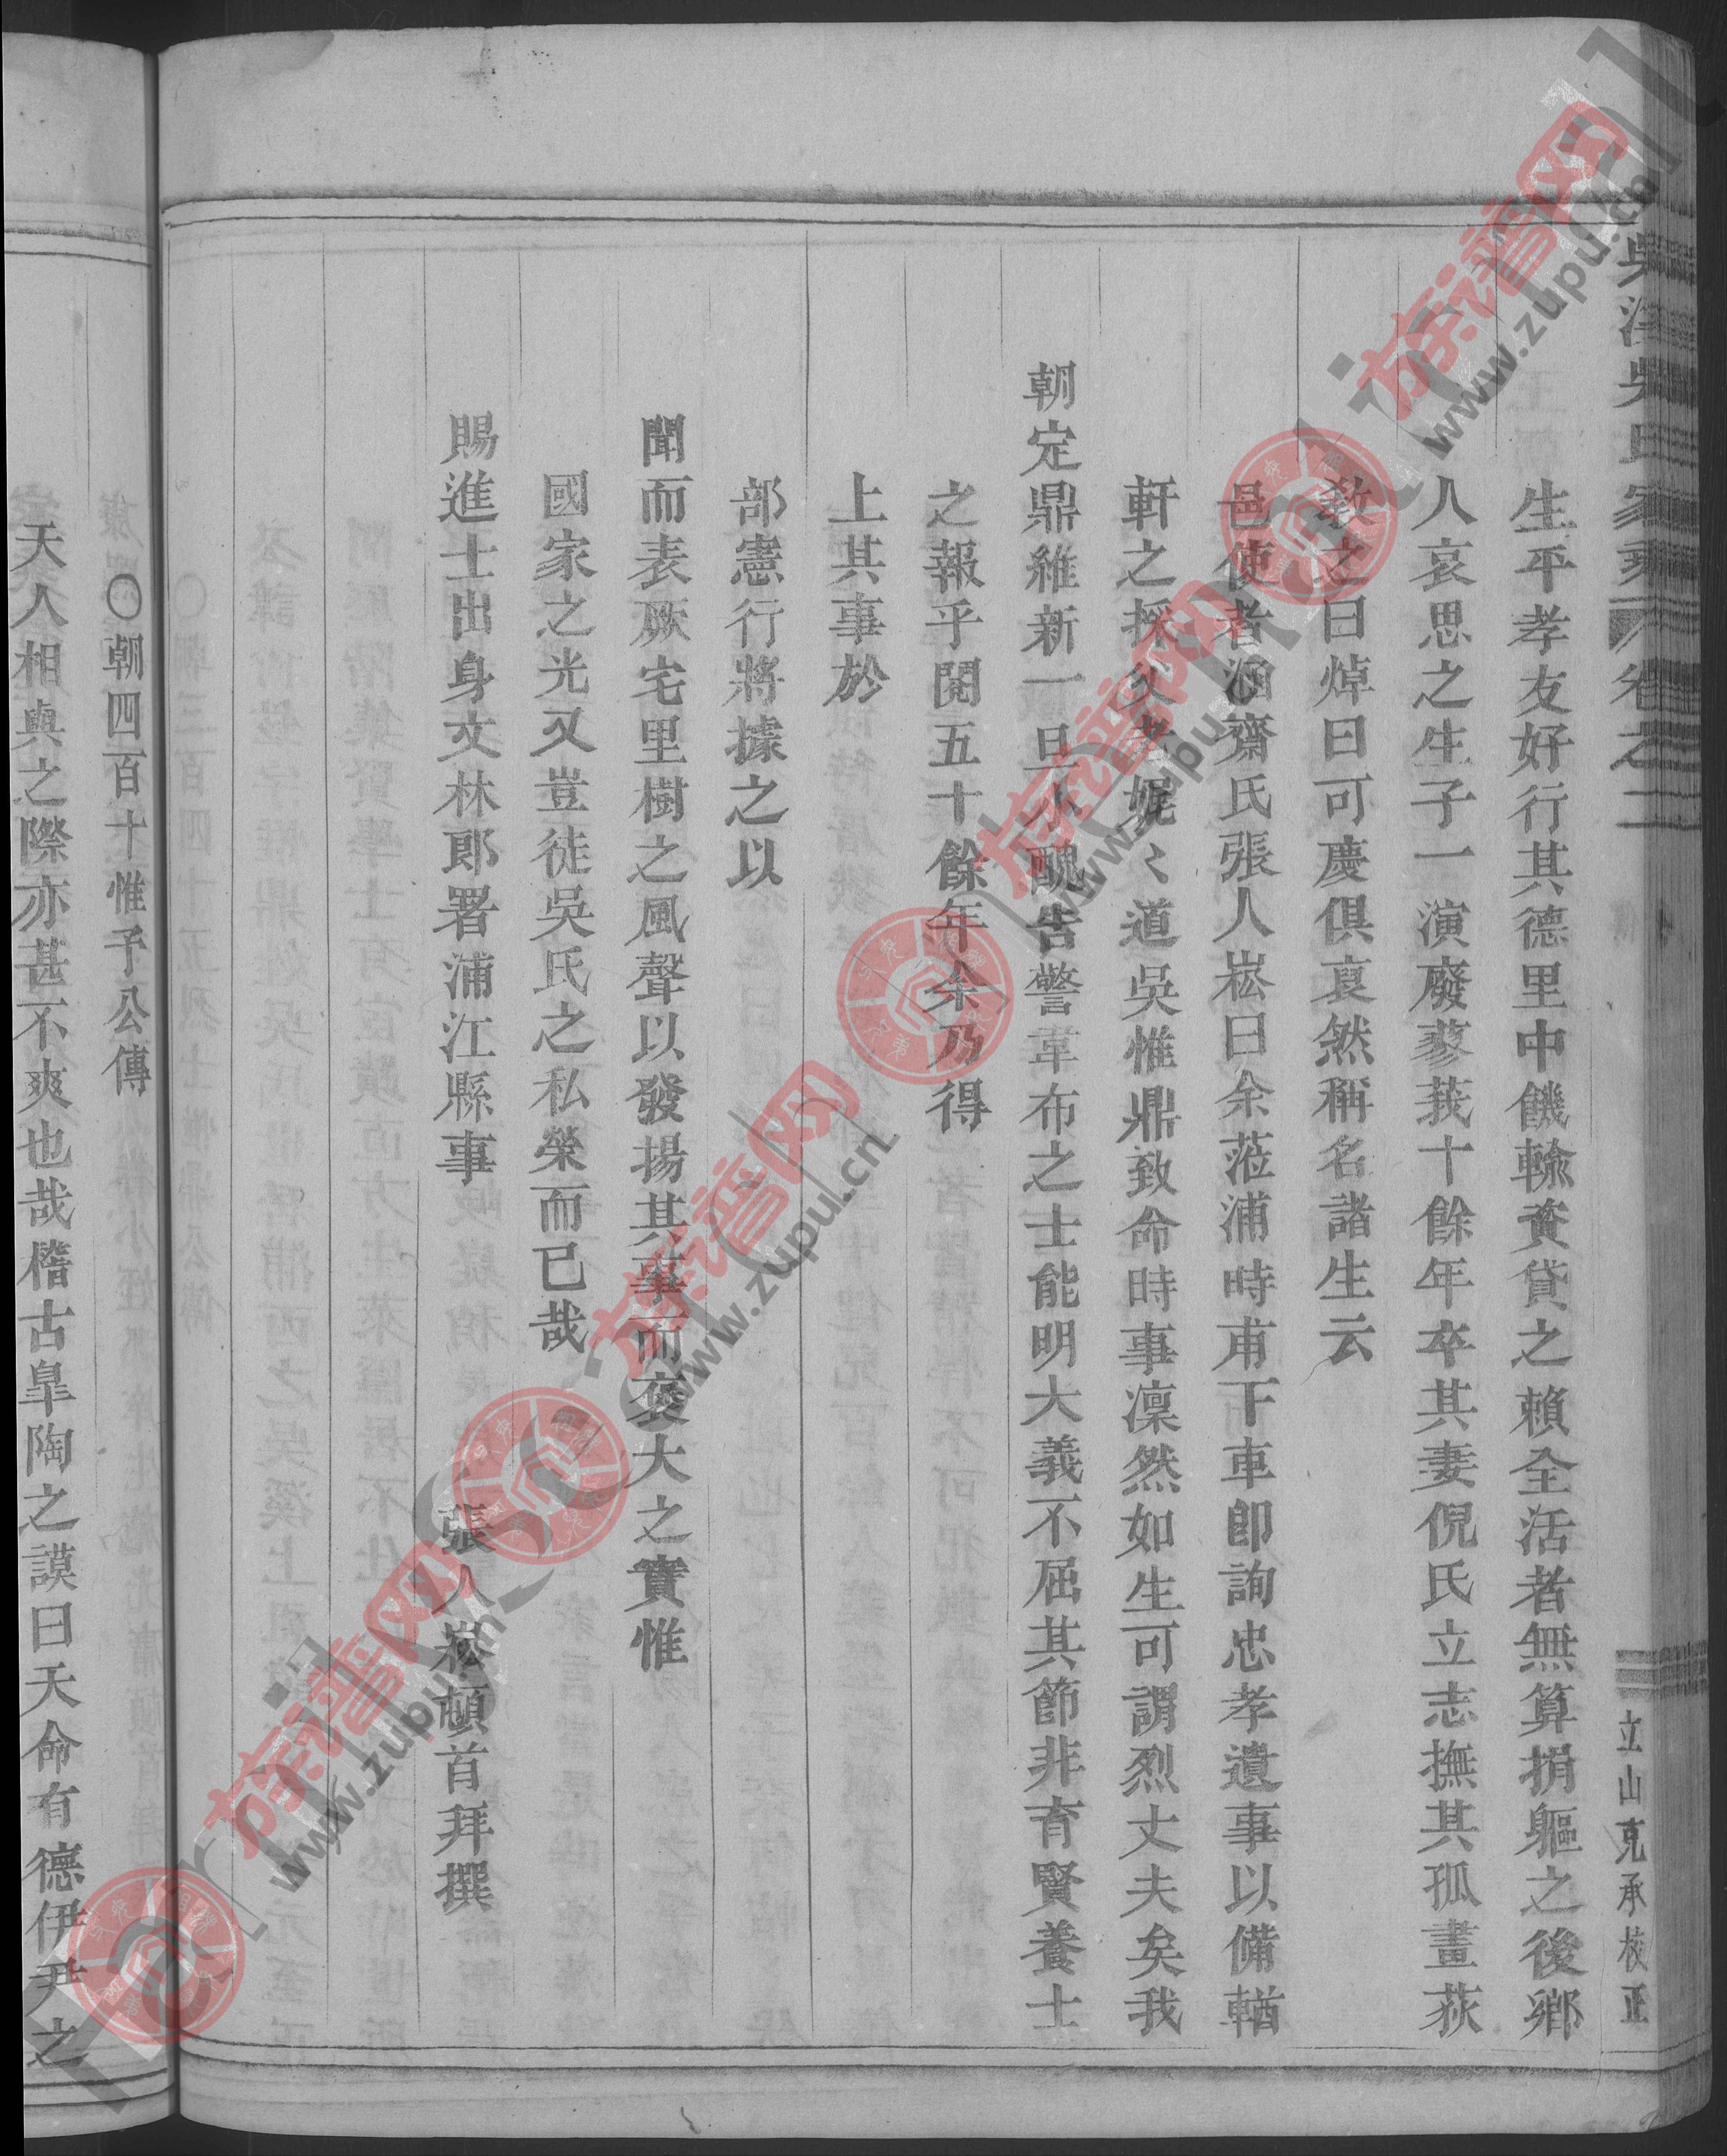 吳溪吳氏家乘 卷之二 立山克承校正
生平孝友好行其德里中饑輸資貸之賴全活者無算捐軀之後鄉
人哀思之生子一演廢蓼莪十餘年卒其妻倪氏立志撫其孤畫荻
教之曰焯曰可慶俱裒然稱名諸生云
邑使者涵齋氏張人崧曰余蒞浦時甫下車卽詢忠孝遺事以備輶
軒之採父老娓〻道吳惟鼎致命時事凜然如生可謂烈丈夫矣我
朝定鼎維新一旦小醜告警韋布之士能明大義不屈其節非育賢養士
之報乎閱五十餘年余乃得
上其事於
部憲行將據之以
聞而表厥宅里樹之風聲以發揚其事而褒大之實惟
國家之光又豈徒吳氏之私榮而已哉
賜進士出身文林郎署浦江縣事 張人崧頓首拜撰
〇朝四百十惟予公傳
天人相與之際亦甚不爽也哉稽古皐陶之謨曰天命有德伊尹之
族譜网
www.zupu.cn